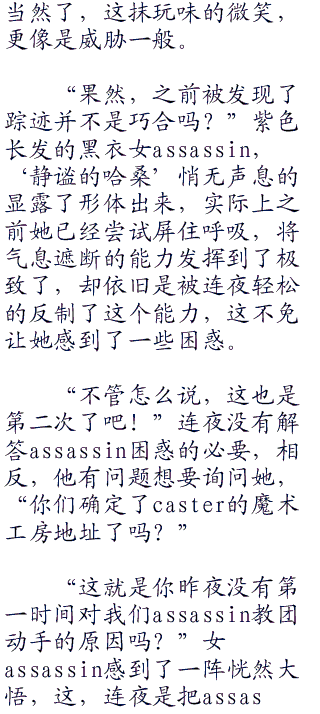 当然了，这抹玩味的微笑，
更像是威胁一般。
“果然，之前被发现了
踪迹并不是巧合吗？”紫色
长发的黑衣女assassin，
‘静谧的哈桑’悄无声息的
显露了形体出来，实际上之
前她已经尝试屏住呼吸，将
气息遮断的能力发挥到了极
致了，却依旧是被连夜轻松
的反制了这个能力，这不免
让她感到了一些困惑。
“不管怎么说，这也是
第二次了吧！”连夜没有解
答assassin困惑的必要，相
反，他有问题想要询问她，
“你们确定了caster的魔术
工房地址了吗？”
“这就是你昨夜没有第
一时间对我们assassin教团
动手的原因吗？”女
assassin感到了一阵恍然大
悟，这，连夜是把assas